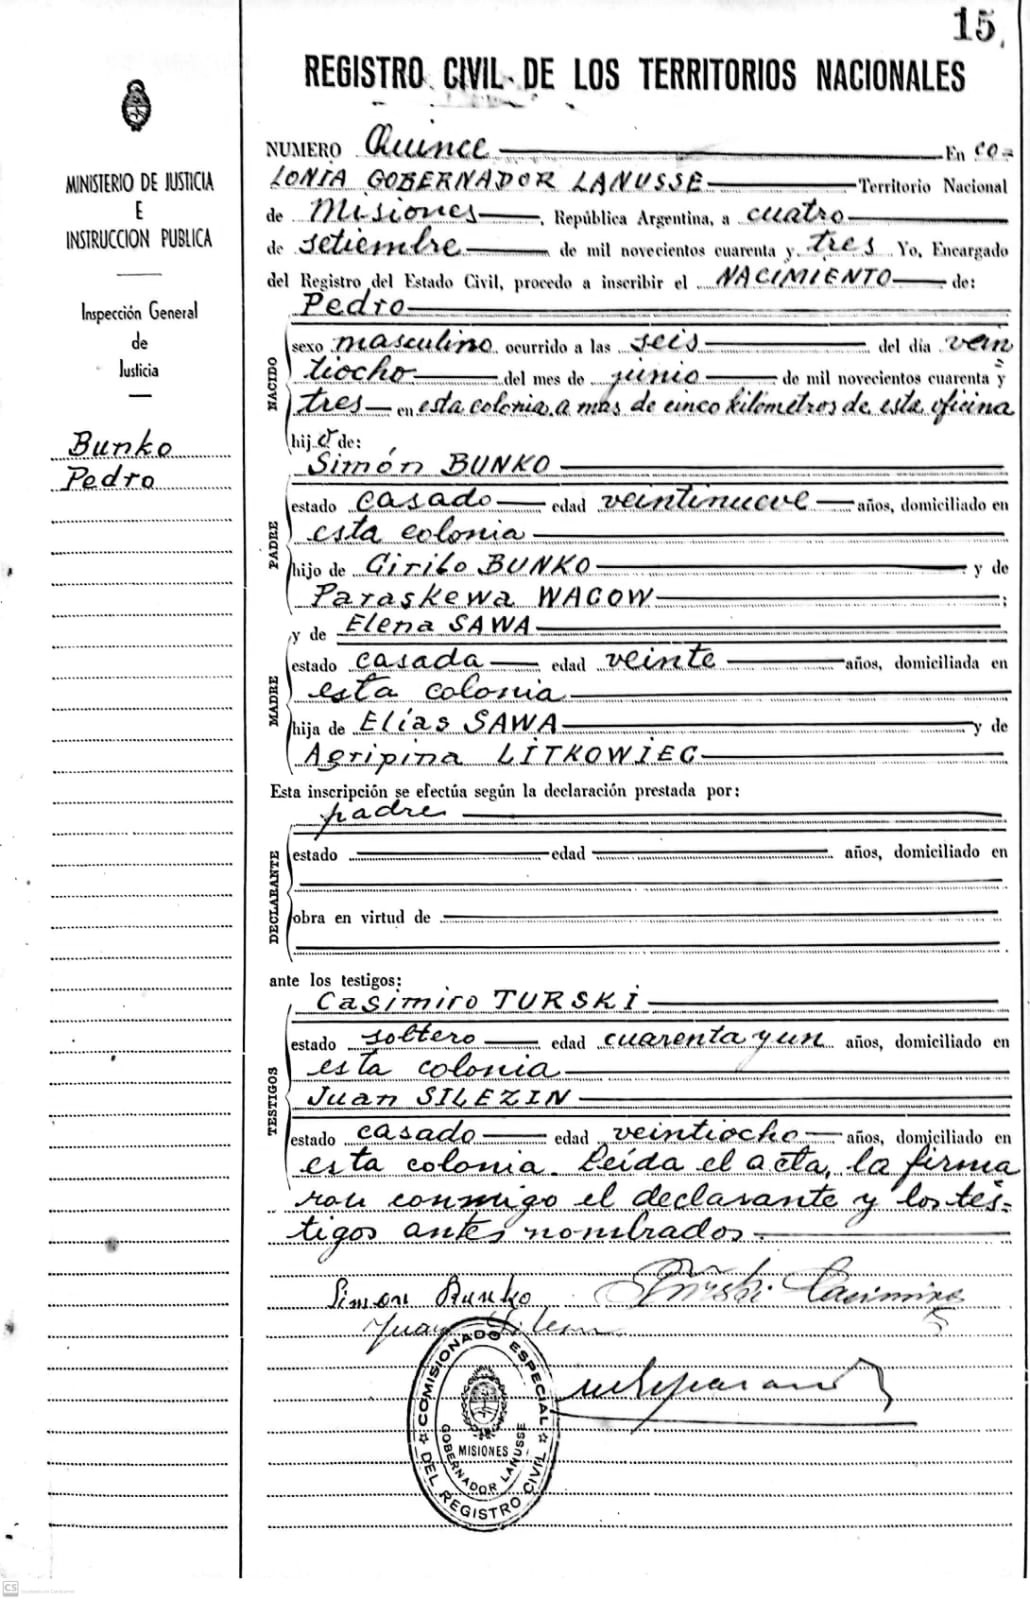 15.
REGISTRO CIVIL DE LOS TERRITORIOS NACIONALES
MINISTERIO DE JUSTICIA
E
INSTRUCCION PUBLICA
Inspección General
de
Justicia
Bunko
Pedro
NUMERO Quince En co=
LONIA GOBERNADOR LANUSSE Territorio Nacional
de Misiones, República Argentina, a cuatro
de setiembre de mil novecientos cuarenta y tres Yo, Encargado
del Registro del Estado Civil, procedo a inscribir el NACIMIENTO de:
Pedro
NACIDO
sexo masculino ocurrido a las seis del día vein
tiocho del mes de junio de mil novecientos cuarenta y
tres en esta colonia, a mas de cinco kilómetros de esta oficina
hijo de:
Simón BUNKO
PADRE
estado casado edad veintinueve años, domiciliado en
esta colonia
hijo de Cirilo BUNKO y de
Paraskewa WACOW;
y de Elena SAWA
MADRE
estado casada edad veinte años, domiciliada en
esta colonia
hija de Elías SAWA y de
Agripina LITKOWIEC
Esta inscripción se efectúa según la declaración prestada por:
padre
DECLARANTE
estado edad años, domiciliado en
obra en virtud de
ante los testigos:
Casimiro TURSKI
TESTIGOS
estado soltero edad cuarenta y un años, domiciliado en
esta colonia
Juan SILEZIN
estado casado edad veintiocho años, domiciliado en
esta colonia. Leída el acta, la firma
ron conmigo el declarante y los tes=
tigos antes nombrados.
Simon Bunko Turski Casimiro
Juan
COMISIONADO ESPECIAL
DEL REGISTRO CIVIL
MISIONES
GOBERNADOR LANUSSE
CS